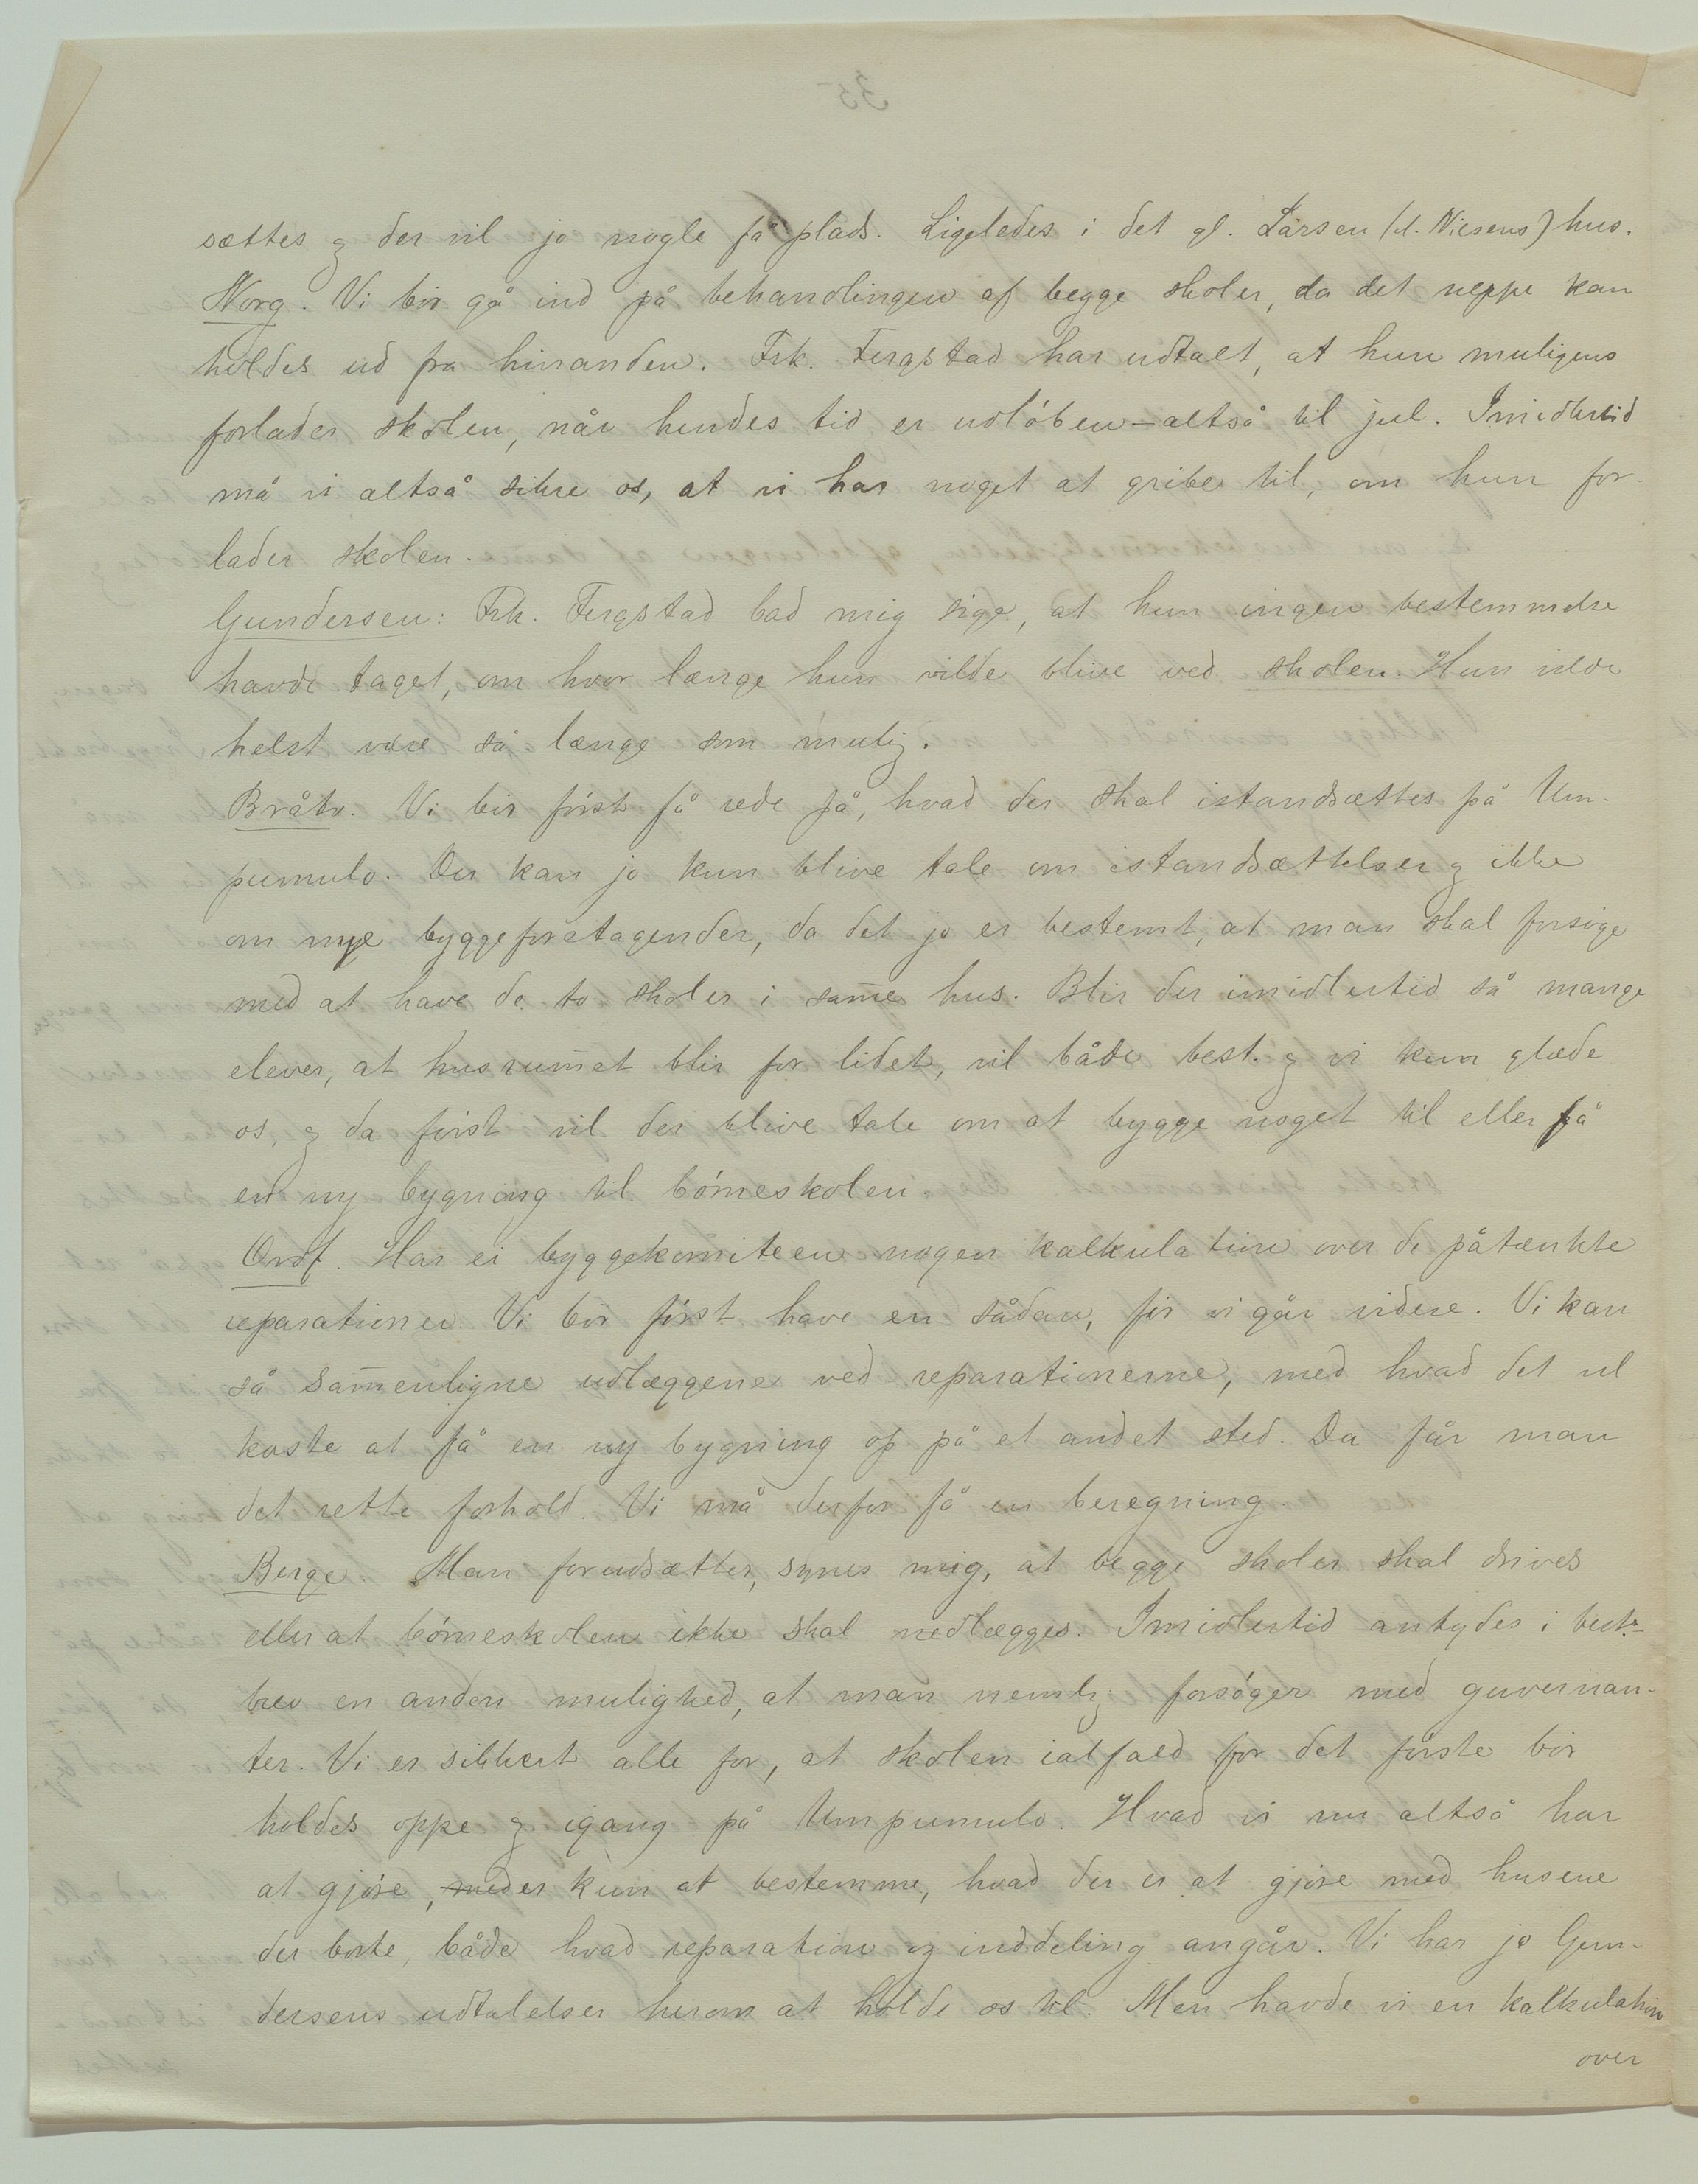 sættes og der vil jo nogle få plads. Ligeledes i det gl. Larsen (d. Nilsens) hus.
Norg. Vi bør gå ind på behandlingen af begge skoler, da det neppe kan
holdes ud fra hinanden. Frk. Fergstad har udtalt, at hun muligens
forlader skolen, når hendes tid er udløben – altså til jul. Imidlertid
må vi altså sikre os, at vi har noget at gribe til, om hun for-
lader skolen.
Gundersen: Frk. Fergstad bad mig sige, at hun ingen bestemmelse
havde taget, om hvor længe hun vilde blive ved skolen. Hun vilde
helst være så længe som mulig.
Bråtv. Vi bør først få rede på, hvad der skal istandsættes på Um-
pumulo. Der kan jo kun blive tale om istandsættelser og ikke
om nye byggeforetagender, da det jo er bestemt, at man skal forsøge
med at have de to skoler i sam̄e hus. Blir der imidlertid så mange
elever, at husrum̄et blir for lidet, vil både best. og vi kun glæde
os, og da først vil der blive tale om at bygge noget til eller få
en ny bygning til børneskolen.
Ordf. Har ei byggekomiteen nogen kalkulation over de påtænkte
reparationer. Vi bør først have en sådan, før vi går videre. Vi kan
så sam̄enligne udlæggene ved reparationerne, med hvad det vil
koste at få en ny bygning op på et andet sted. Da får man
det rette forhold. Vi må derfor få en beregning.
Berge. Man forudsætter, synes mig, at begge skoler skal drives
eller at børneskolen ikke skal nedlægges. Imidlertid antydes i best.s
brev en anden mulighed, at man nemlig forsøger med guvernan-
ter. Vi er sikkert alle for, at skolen ialfald for det første bør
holdes oppe og igang på Umpumulo. Hvad vi nu altså har
at gjøre, med er kun at bestemme, hvad der er at gjøre med husene
der borte, både hvad reparation og inddeling angår. Vi har jo Gun-
dersens udtalelser herom at holde os til. Men havde vi en kalkulation
over